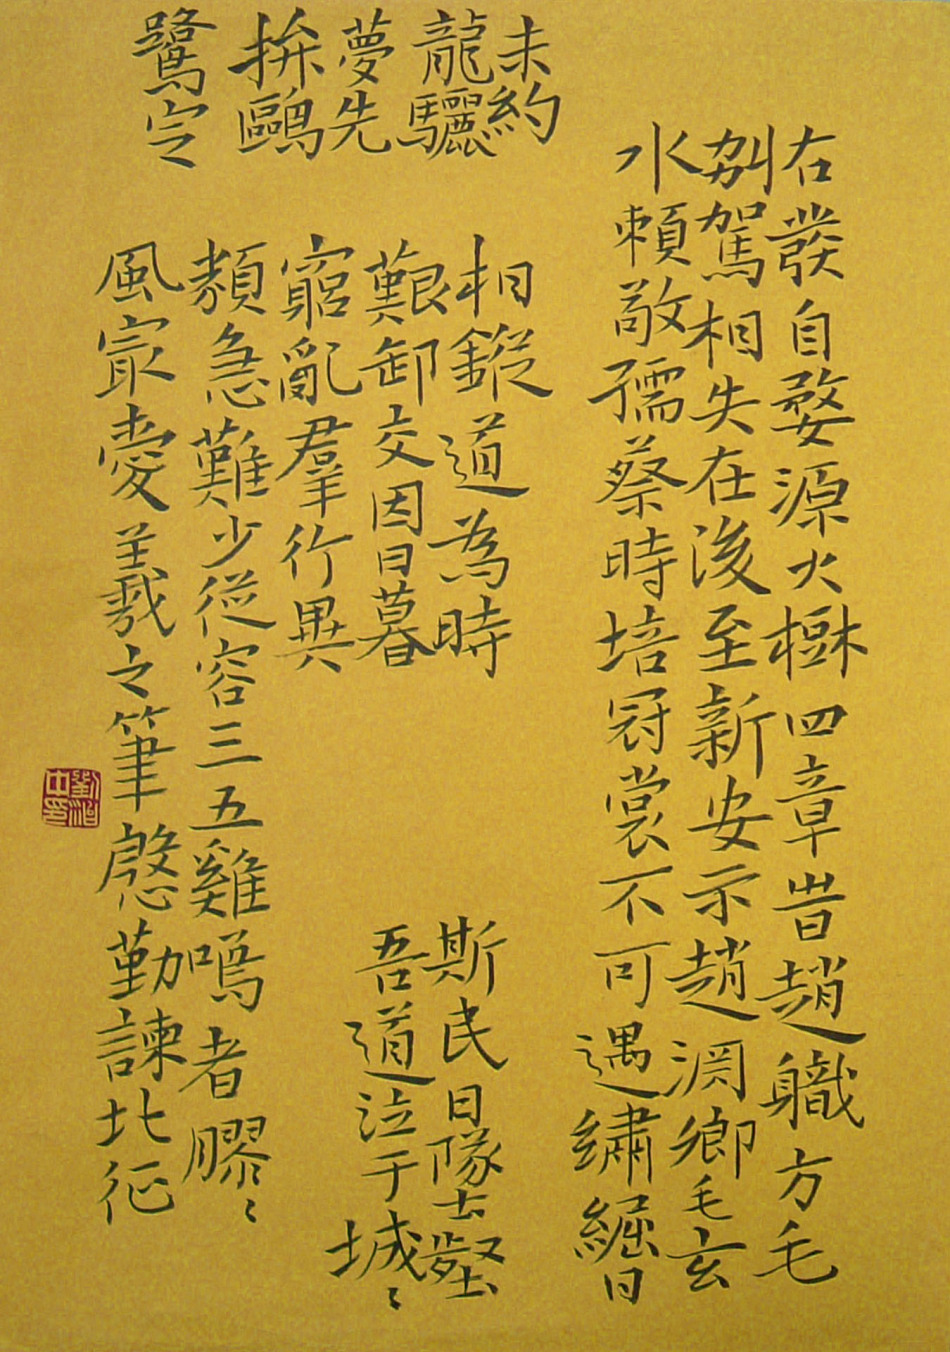 右發自婺源大樹四章昔趙職方毛
別駕相失在浚至新安示趙淵鄉毛玄
水賴敬孺蔡時培冠裳不可遇繡絕日
未約
龍驪
夢先
拚鷗
鷺定
相鏦道為時
艱卸交因日暮
窮亂羣行異
斯民日隊士壑
吾道泣于城〻
類急難少從容三五雞鳴者膠〻〻
風寂憂羲之筆慇勤諫北征
劉治
中印